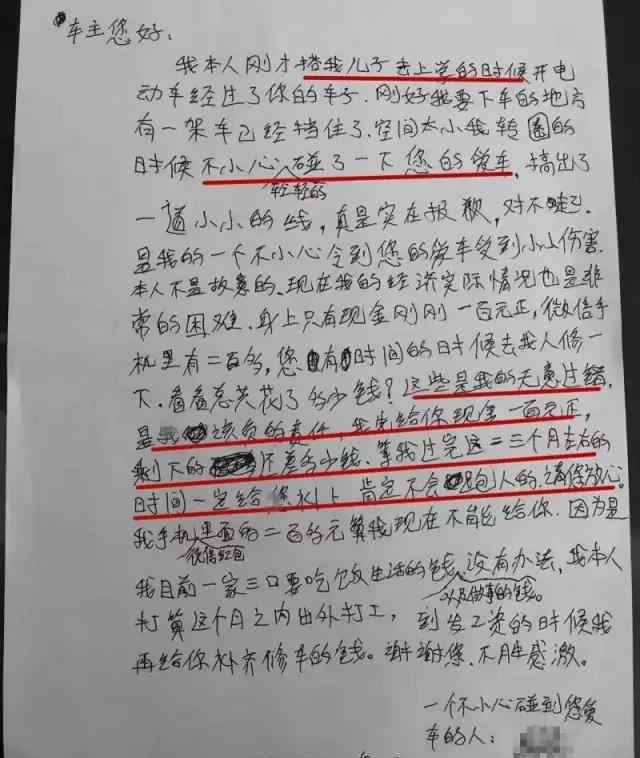 车主您好:
我本人刚才搭我儿子去上学的时候开电
动车经过了你的车子.刚好我要下车的地方
有一架车已经挡住了.空间太小我转圈的
时候不小心碰了一下您的爱车,搞出了
轻轻的
一道小小的线,真是实在报歉,对不起.
是我的一个不小心令到您的爱车受到小小伤害.
本人不是故意的、现在我的经济实际情况也是非
常的困难.身上只有现金刚刚一百元正,微信手
机里有二百多,您有时间的日时候去找人修一
下.看看总共花了多少钱?这些是我的无意过错,
是我该负的责任,我先给你现金一百元正,
剩下的还差多少钱、等我过完这二三个月左右的
时间一定给您补上肯定不会跑人的.请您放心。
我手机里面的二百多元算我现在不能给你.因为是
微信红包
我目前一家三口要吃饭生活的钱,没有办法,我本人
以及做事的钱。
打算这个月之内出外打工,到发工资的时候我
再给你补齐修车的钱。谢谢您.不胜感激。
一个不小心碰到您爱
车的人: